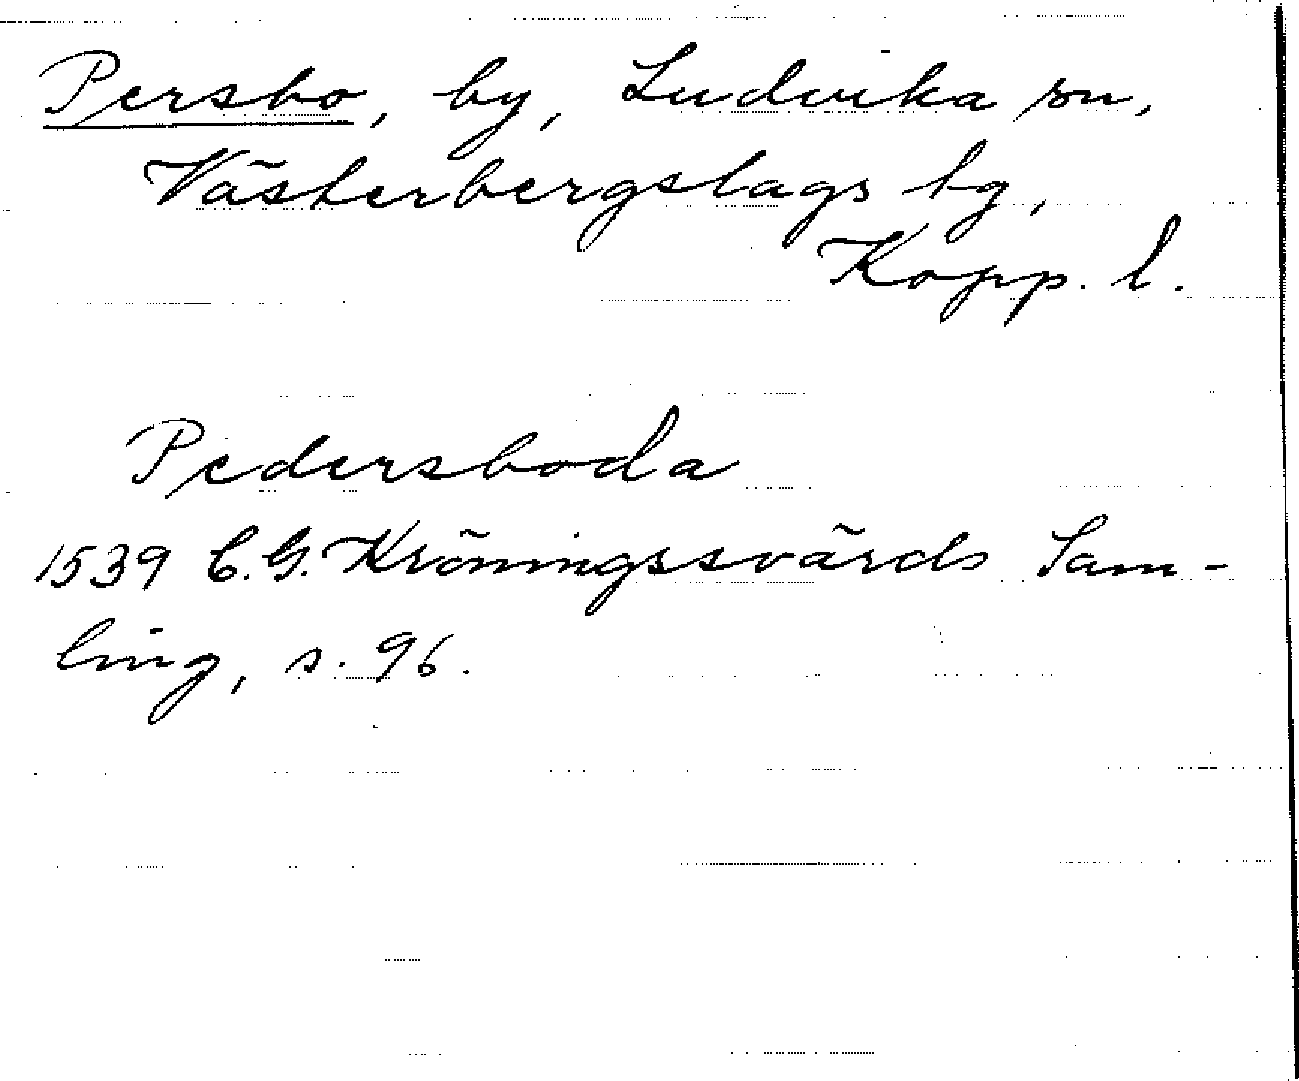 Persbo, by, Ludvika sn,
Västerbergslags bg,
Kopp. l.
Pedersboda
1539 C.G. Kröningssvärds Sam-
ling, s. 96.